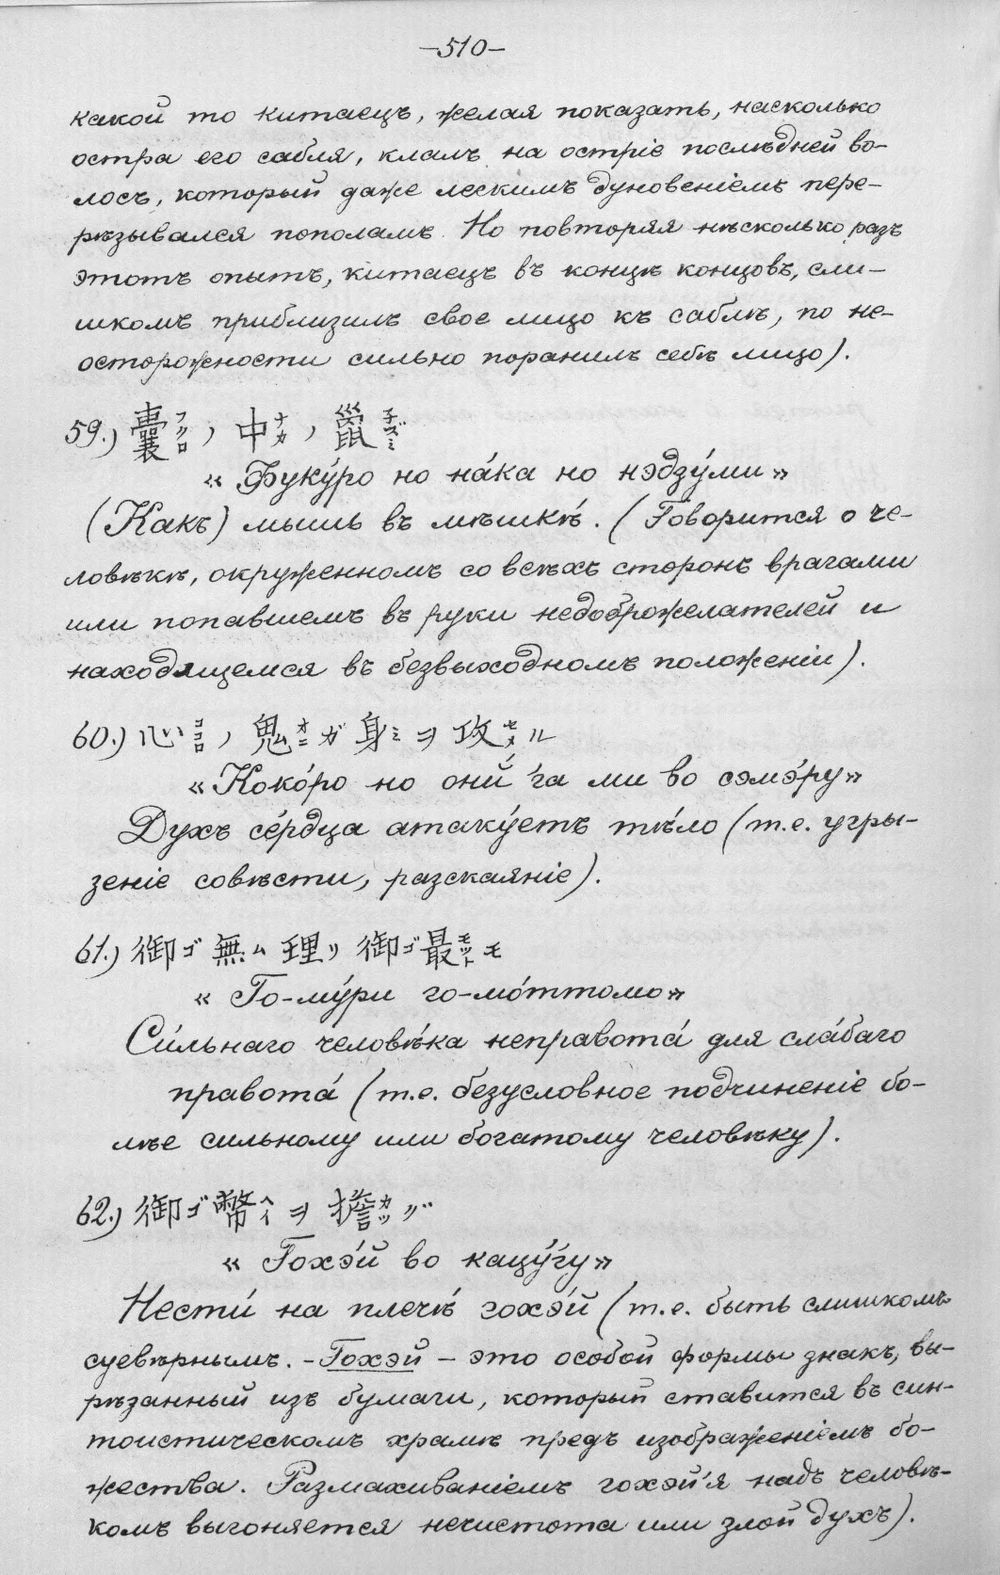 –510–
какой то китаецъ, желая показать, насколько
остра его сабля, клалъ на остріе послѣдней во-
лосъ, который даже легкимъ дуновеніемъ пере-
рѣзывался пополамъ. Но повторяя нѣсколько разъ
этотъ опытъ, китаецъ въ концѣ концовъ, сли-
шкомъ приблизилъ свое лицо къ саблѣ, по не-
осторожности сильно поранилъ себѣ лицо).
59.) 囊フクロノ中ナカノ鼠子ズミ
«Фуку́ро но на́ка но нэдзу́ми»
(Какъ) мышь въ мѣшкѣ́. (Говорится о че-
ловѣкѣ, окруженномъ со всѣхъ сторонъ врагами
или попавшемъ въ руки недоброжелателей и
находящемся въ безвыходномъ положеніи).
60.) 心ココロノ鬼オニガ身ミヲ攻セメル
«Коко́ро но они́ га ми во сэмэ́ру»
Духъ се́рдца атаку́етъ тѣ́ло (т.е. угры-
зеніе совѣсти, разскаяніе).
61.) 御ゴ無ム理リ御ゴ最モットモ
«Го-му́ри го-мо́ттомо»
Си́льнаго человѣ́ка неправота́ для сла́баго
правота́ (т.е. безусловное подчиненіе бо-
лѣе сильному или богатому человѣку).
62.) 御ゴ幣ヘイヲ擔カツグ
«Гохэ́й во кацу́гу»
Нести́ на плечѣ́ гохэ́й (т.е. быть слишкомъ
суевѣрнымъ. – Гохэй – это особой формы знакъ, вы-
рѣзанный изъ бумаги, который ставится въ син-
тоистическомъ храмѣ предъ изображеніемъ бо-
жества. Размахиваніемъ гохэй'я надъ человѣ-
комъ выгоняется нечистота или злой духъ).